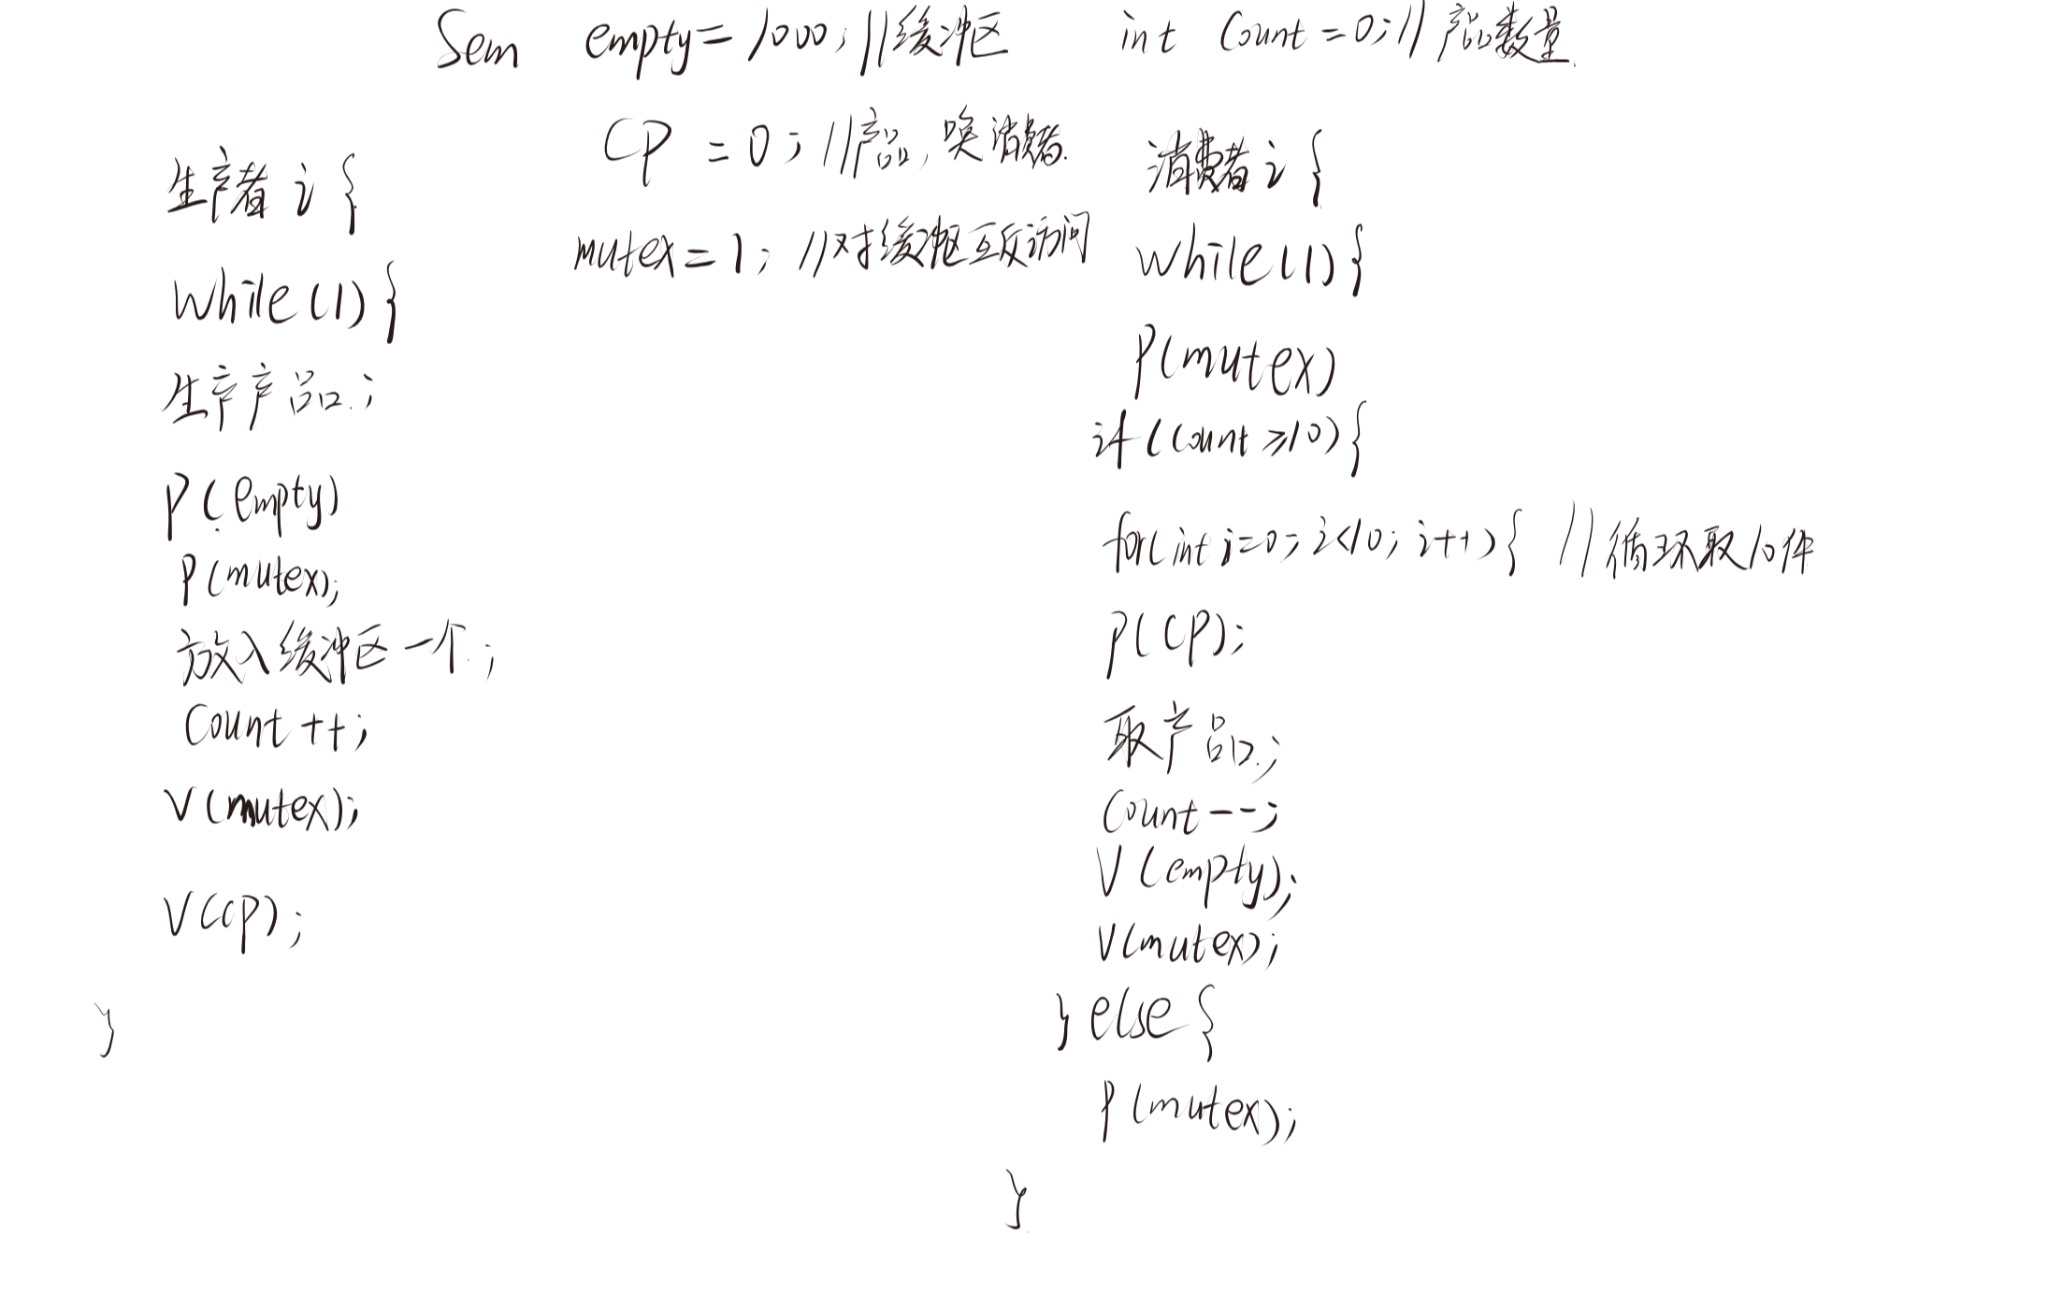 Sem empty=1000; //缓冲区 int Count=0; //产品数量.
CP = 0; //产品, 唤消费者.
mutex=1; //对缓冲区互斥访问
生产者 i {
while(1){
生产产品.;
P(empty)
P(mutex);
放入缓冲区一个.;
Count ++;
V(mutex);
V(CP);
}
消费者 i {
while(1){
P(mutex)
if(Count≥10){
for(int i=0; i<10; i++){ //循环取10件
P(CP);
取产品.;
Count--;
V(empty);
V(mutex);
} else {
P(mutex);
}